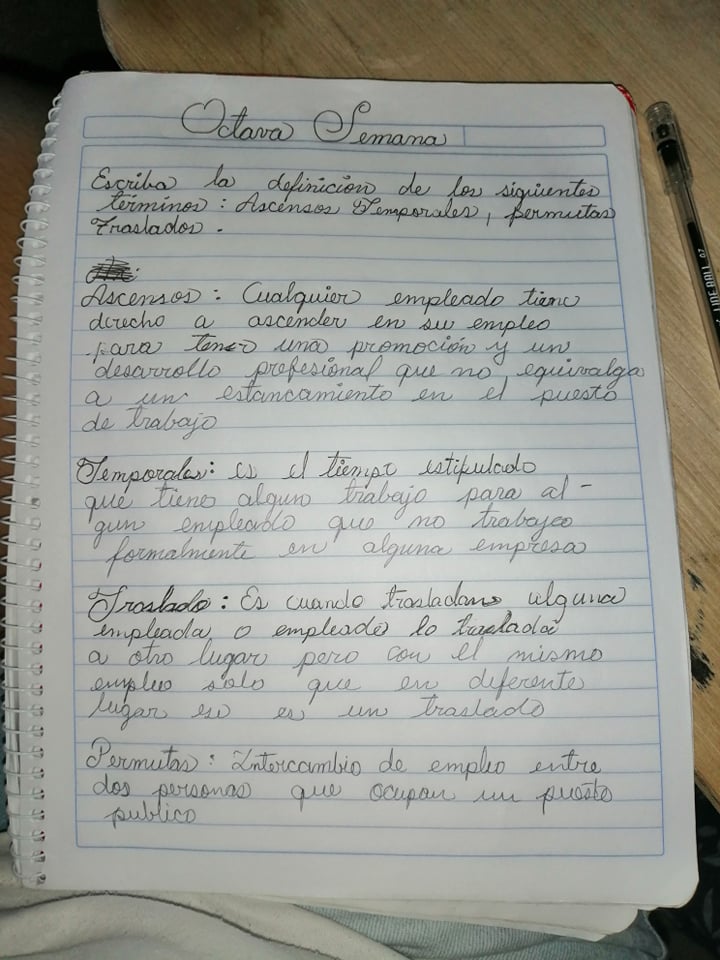 Octava Semana
Escriba la definicion de los siguientes
términos : Ascensos Temporales, permutas
Traslados.
Ascensos : Cualquier empleado tiene
derecho a ascender en su empleo
para tener una promoción y un
desarrollo profesional que no equivalga
a un estancamiento en el puesto
de trabajo
Temporales: es el tiempo estipulado
que tiene algun trabajo para al-
gun empleado que no trabajeo
formalmente en alguna empresa
Traslado : Es cuando trasladan alguna
empleada o empleado lo traslada
a otro lugar pero con el mismo
empleo solo que en diferente
lugar eso es un traslado
Permutas : Intercambio de empleo entre
dos personas que ocupan un puesto
publico
LINE BALL 07